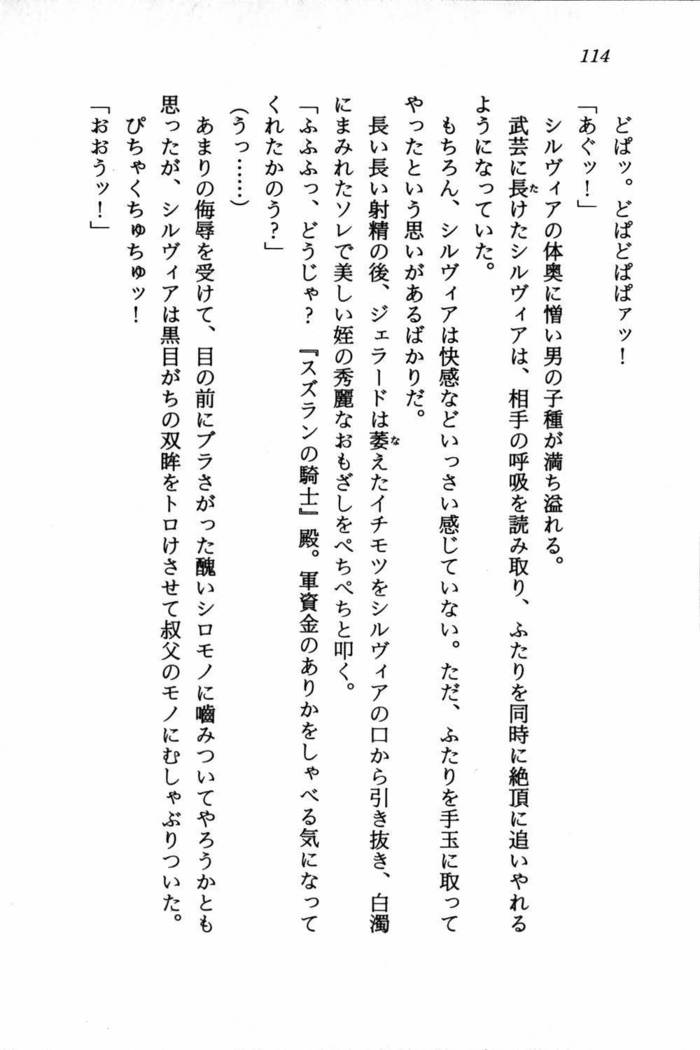 114
どぱッ。どぱどぱぱァッ！
「あぐッ！」
シルヴィアの体奥に憎い男の子種が満ち溢れる。
武芸に長けたシルヴィアは、相手の呼吸を読み取り、ふたりを同時に絶頂に追いやれる
ようになっていた。
もちろん、シルヴィアは快感などいっさい感じていない。ただ、ふたりを手玉に取って
やったという思いがあるばかりだ。
長い長い射精の後、ジェラードは萎えたイチモツをシルヴィアの口から引き抜き、白濁
にまみれたソレで美しい姪の秀麗なおもざしをぺちぺちと叩く。
「ふふふっ、どうじゃ？　『スズランの騎士』殿。軍資金のありかをしゃべる気になって
くれたかのう？」
(うっ……)
あまりの侮辱を受けて、目の前にブラさがった醜いシロモノに噛みついてやろうかとも
思ったが、シルヴィアは黒目がちの双眸をトロけさせて叔父のモノにむしゃぶりついた。
ぴちゃくちゅちゅッ！
「おおうッ！」